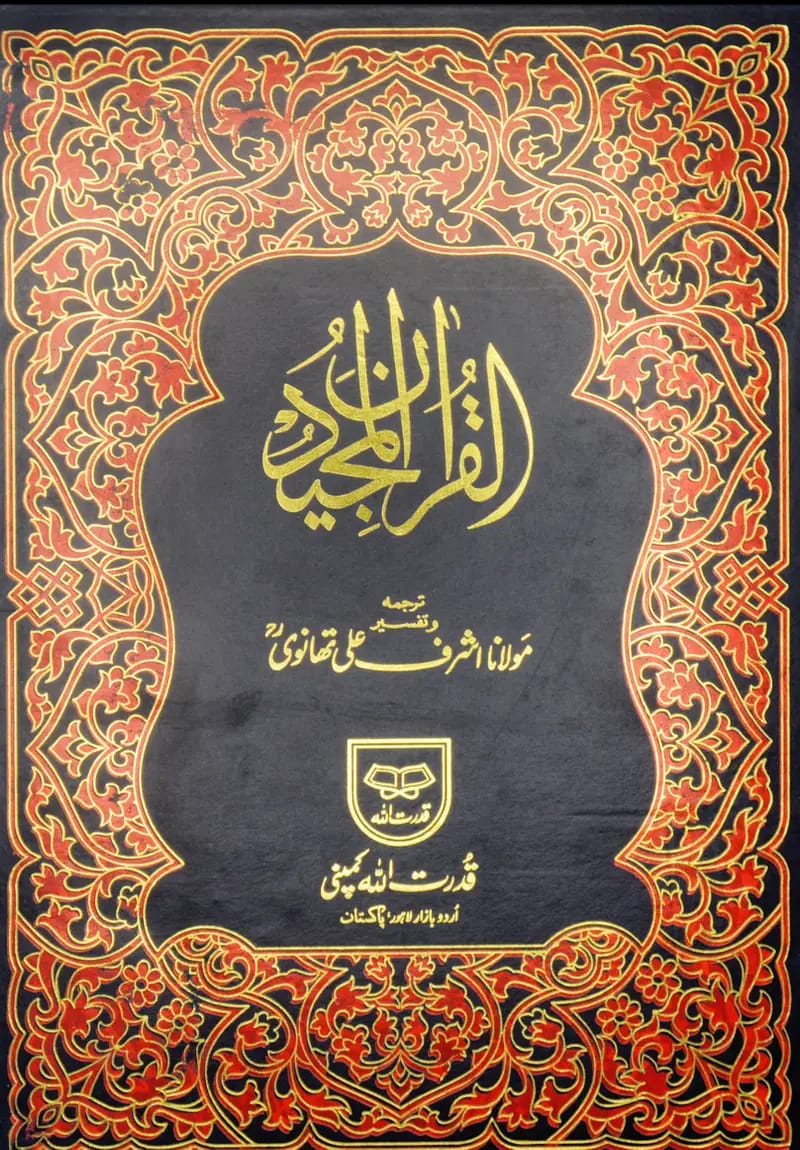 القرآن المجيد
ترجمہ
وتفسیر
مَولانا اشرف علی تھانوی رح
قدرت اللہ
قُدرت اللہ کمپنی
اُردو بازار لاہور، پاکستان